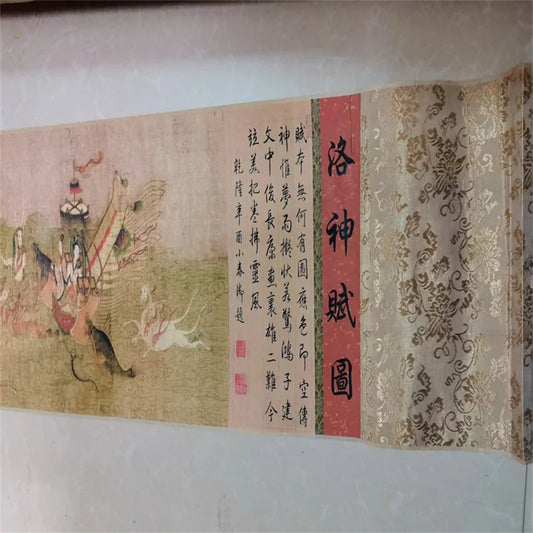 洛神賦圖
賦本無何有圖應色即空傳
神惟夢雨擬狀若驚鴻子建
文中俊長康畫裏雄二難今
竝美把卷拂靈風
乾隆辛酉小春御題